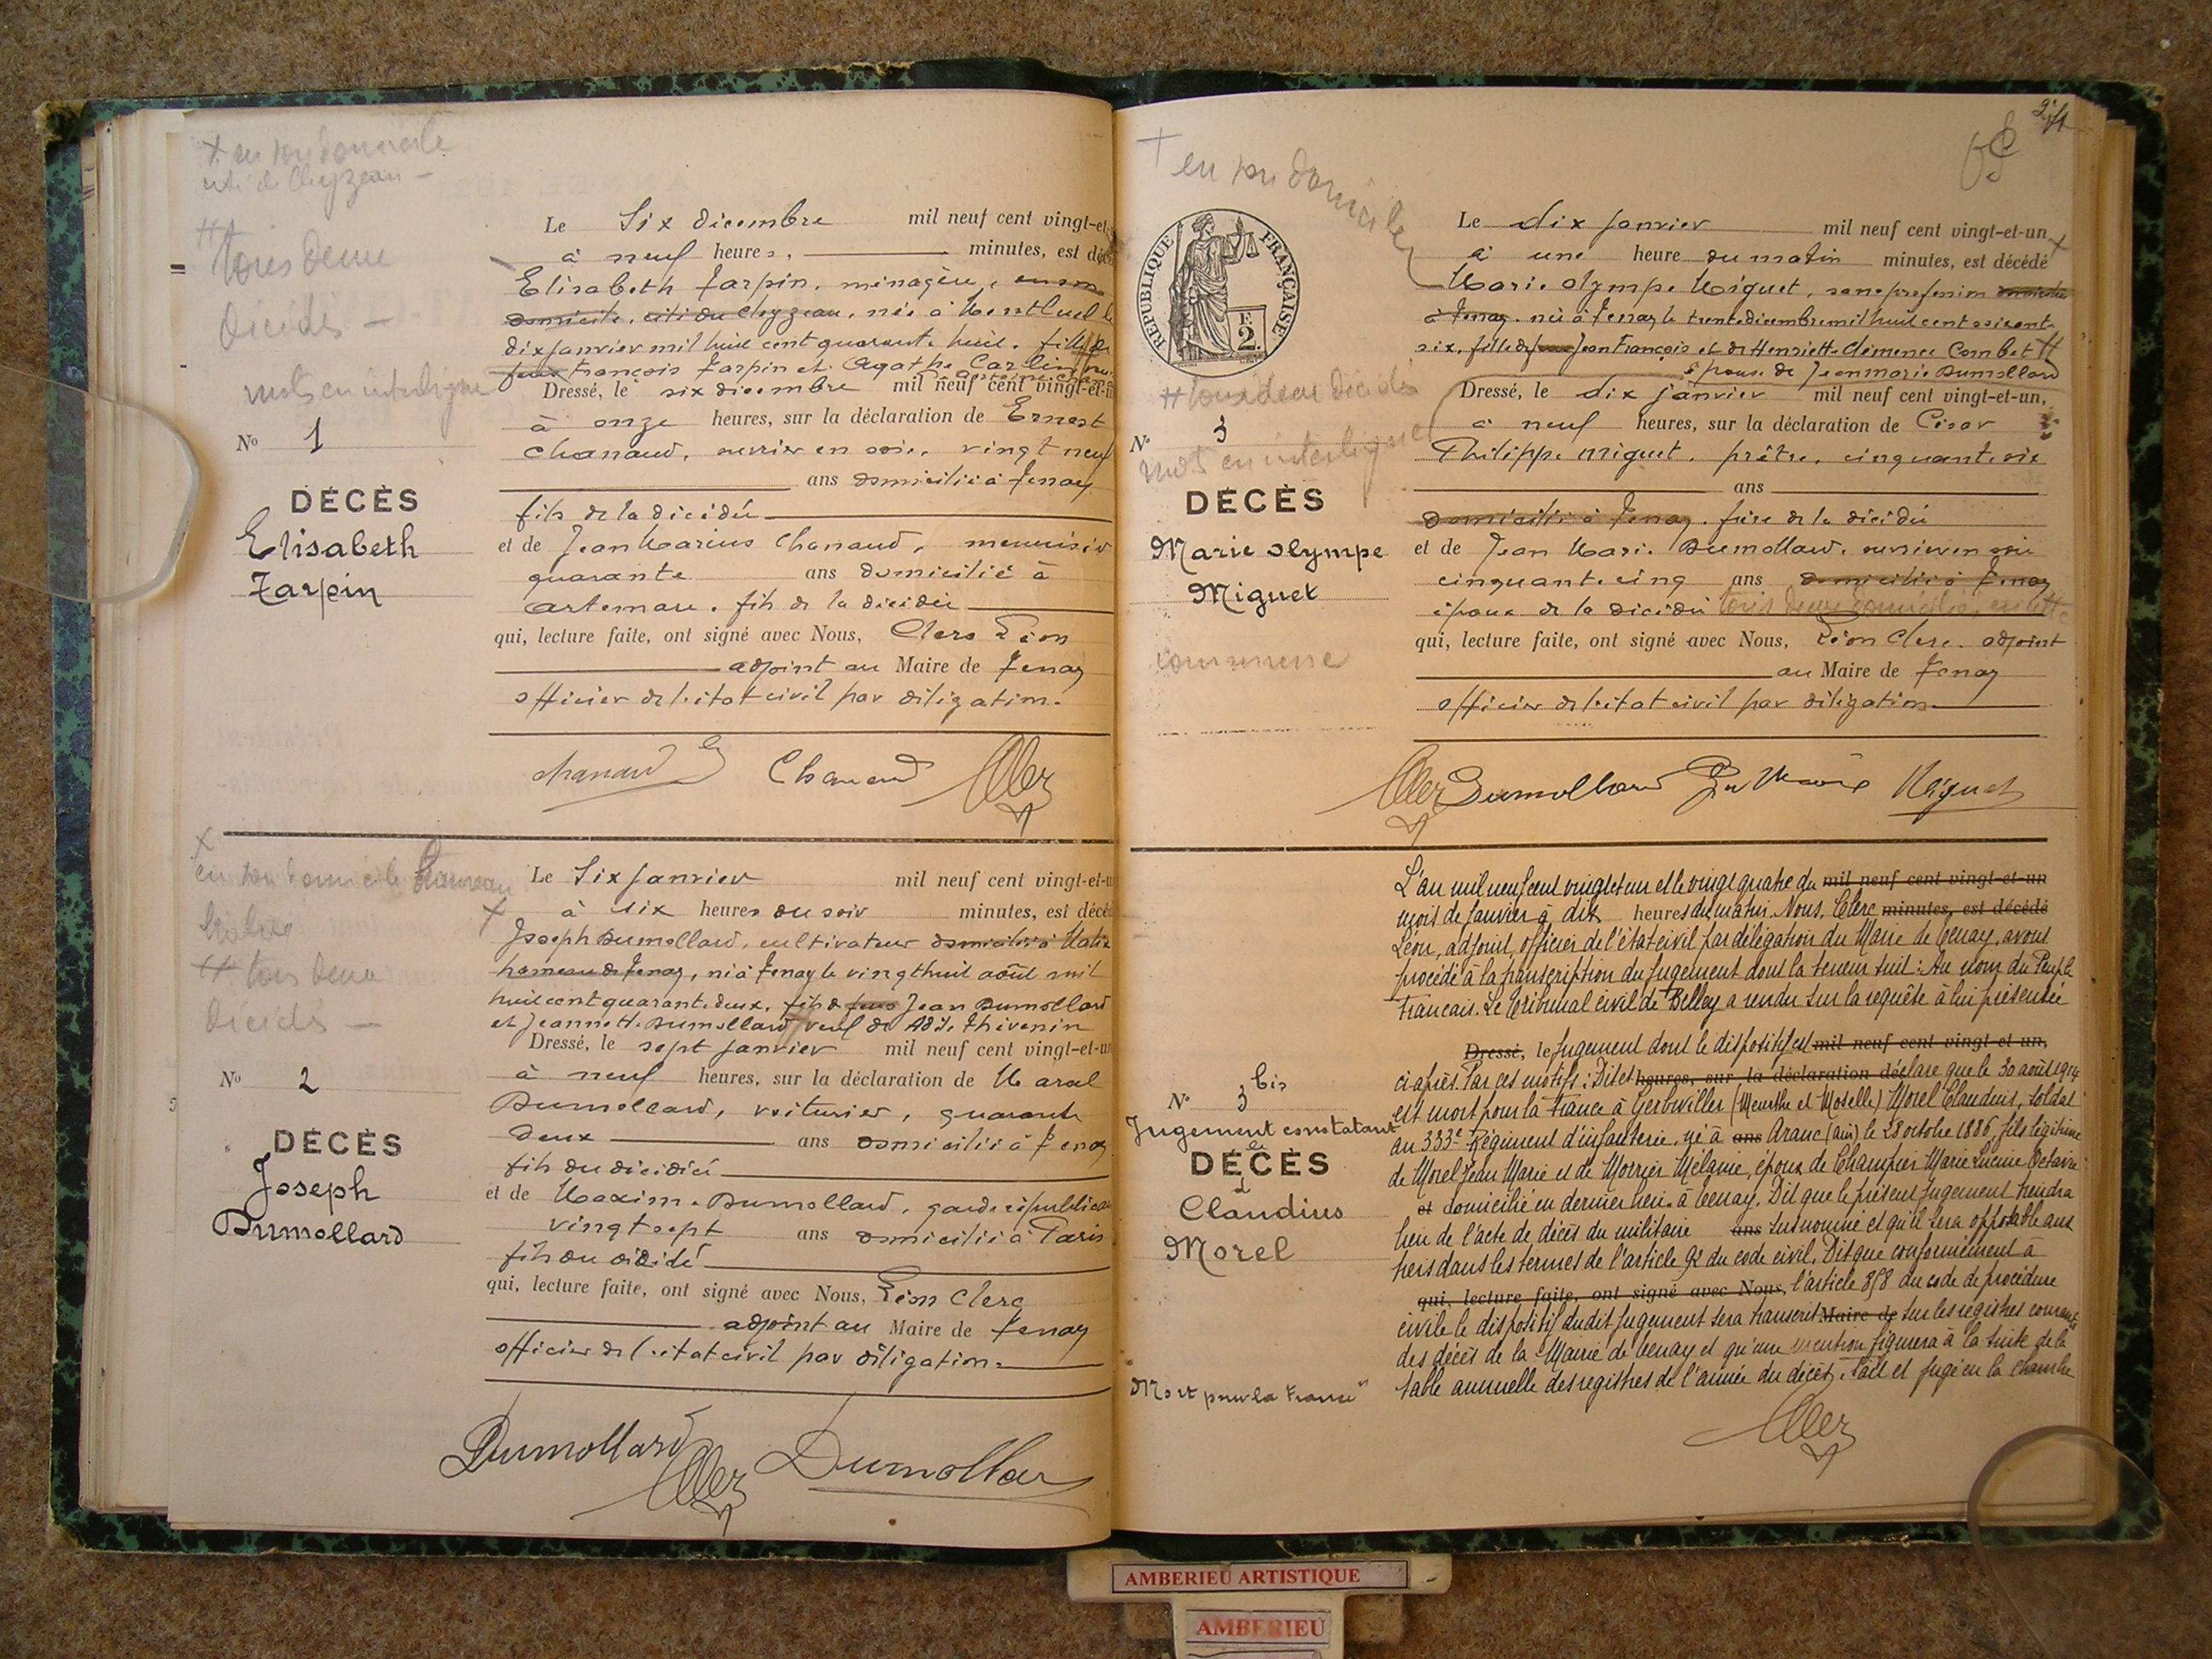 + en son domicile
cité du Chyzeau —
# tous deux
décédés —
mots en interligne
No 1
DÉCÈS
Elisabeth
Tarpin
Le Six décembre mil neuf cent vingt-et-
à neuf heures, minutes, est décé
Elisabeth Tarpin, ménagère, en son
domicile, cité du Chyzeau, née à Montluel le
dix janvier mil huit cent quarante huit, fille de
feux François Tarpin et Agathe Carlin
Dressé, le six décembre mil neuf cent vingt-et-u
à onze heures, sur la déclaration de Ernest
Chanaud, ouvrier en soie, vingt neuf
ans domicilié à Tenay
fils de la décédée
et de Jean Marius Chanaud, menuisier
quarante ans domicilié à
Artemare, fils de la décédée
qui, lecture faite, ont signé avec Nous, Clerc Léon
adjoint au Maire de Tenay
officier de l'état civil par délégation.
Chanaud E Chanaud Clerc
+
en son domicile hameau
# tous deux
décédés —
No 2
DÉCÈS
Joseph
Dumollard
Le Six janvier mil neuf cent vingt-et-u
+ à six heures du soir minutes, est décé
Joseph Dumollard, cultivateur domicilié à
hameau de Tenay, né à Tenay le vingt huit août mil
huit cent quarante deux, fils de feus Jean Dumollard
et Jeannette Dumollard veuf de Adèle Thévenin
Dressé, le sept janvier mil neuf cent vingt-et-un
à neuf heures, sur la déclaration de Maral
Dumollard, voiturier, quarante
deux ans domicilié à Tenay
fils du décédé
et de Maxime Dumollard, garde républicain
vingt sept ans domicilié à Paris
fils du décédé
qui, lecture faite, ont signé avec Nous, Léon Clerc
adjoint au Maire de Tenay
officier de l'état civil par délégation.
Dumollard Clerc Dumollard
+ en son domicile
RÉPUBLIQUE FRANÇAISE
E
2.
# tous deux décédés
No 3
mots en interligne
DÉCÈS
Marie Olympe
Miguet
commune
Le dix janvier mil neuf cent vingt-et-un +
à une heure du matin minutes, est décédé
Marie Olympe Miguet, sans profession domiciliée
à Tenay, née à Tenay le trente décembre mil huit cent soixante
six, fille de feus Jean François et de Henriette Clémence Combet #
épouse de Jean Marie Dumollard
Dressé, le dix janvier mil neuf cent vingt-et-un,
à neuf heures, sur la déclaration de César
Philippe Miguet, prêtre, cinquante six
ans
domicilié à Tenay, frère de la décédée
et de Jean Marie Dumollard, ouvrier en soie
cinquante cinq ans domicilié à Tenay
époux de la décédée tous deux domiciliés en cette
qui, lecture faite, ont signé avec Nous, Léon Clerc, adjoint
au Maire de Tenay
officier de l'état civil par délégation
Clerc Dumollard Jn Marie Miguet
No 3 bis
Jugement constatant
le
DÉCÈS
d
Claudius
Morel
"Mort pour la France"
L'an mil neuf cent vingt et un et le vingt quatre du mil neuf cent vingt-et-un
mois de janvier à dix heures du matin. Nous, Clerc minutes, est décédé
Léon, adjoint, officier de l'état civil par délégation du Maire de Tenay, avons
procédé à la transcription du jugement dont la teneur suit : Au nom du Peuple
Français. Le Tribunal civil de Belley a rendu sur la requête à lui présentée
Dressé, le jugement dont le dispositif est mil neuf cent vingt et un,
ci après. Par ces motifs : Dit et heures, sur la déclaration déclare que le 30 août 1914
est mort pour la France à Gerbeviller (Meurthe et Moselle) Morel Claudius, soldat
au 333e Régiment d'infanterie, né à ans Aranc (Ain) le 28 octobre 1886, fils légitime
de Morel Jean Marie et de Morrier Mélanie, époux de Champier Marie Lucine Octavie
et domicilié en dernier lieu à Tenay. Dit que le présent jugement tiendra
lieu de l'acte de décès du militaire ans susnommé et qu'il sera opposable aux
tiers dans les termes de l'article 92 du code civil. Dit que conformément à
qui, lecture faite, ont signé avec Nous, l'article 858 du code de procédure
civile le dispositif dudit jugement sera transcrit Maire de sur les registres courants
des décès de la Mairie de Tenay et qu'une mention figurera à la suite de la
table annuelle des registres de l'année du décès. Fait et jugé en la chambre
Clerc
AMBERIEU ARTISTIQUE
AMBERIEU